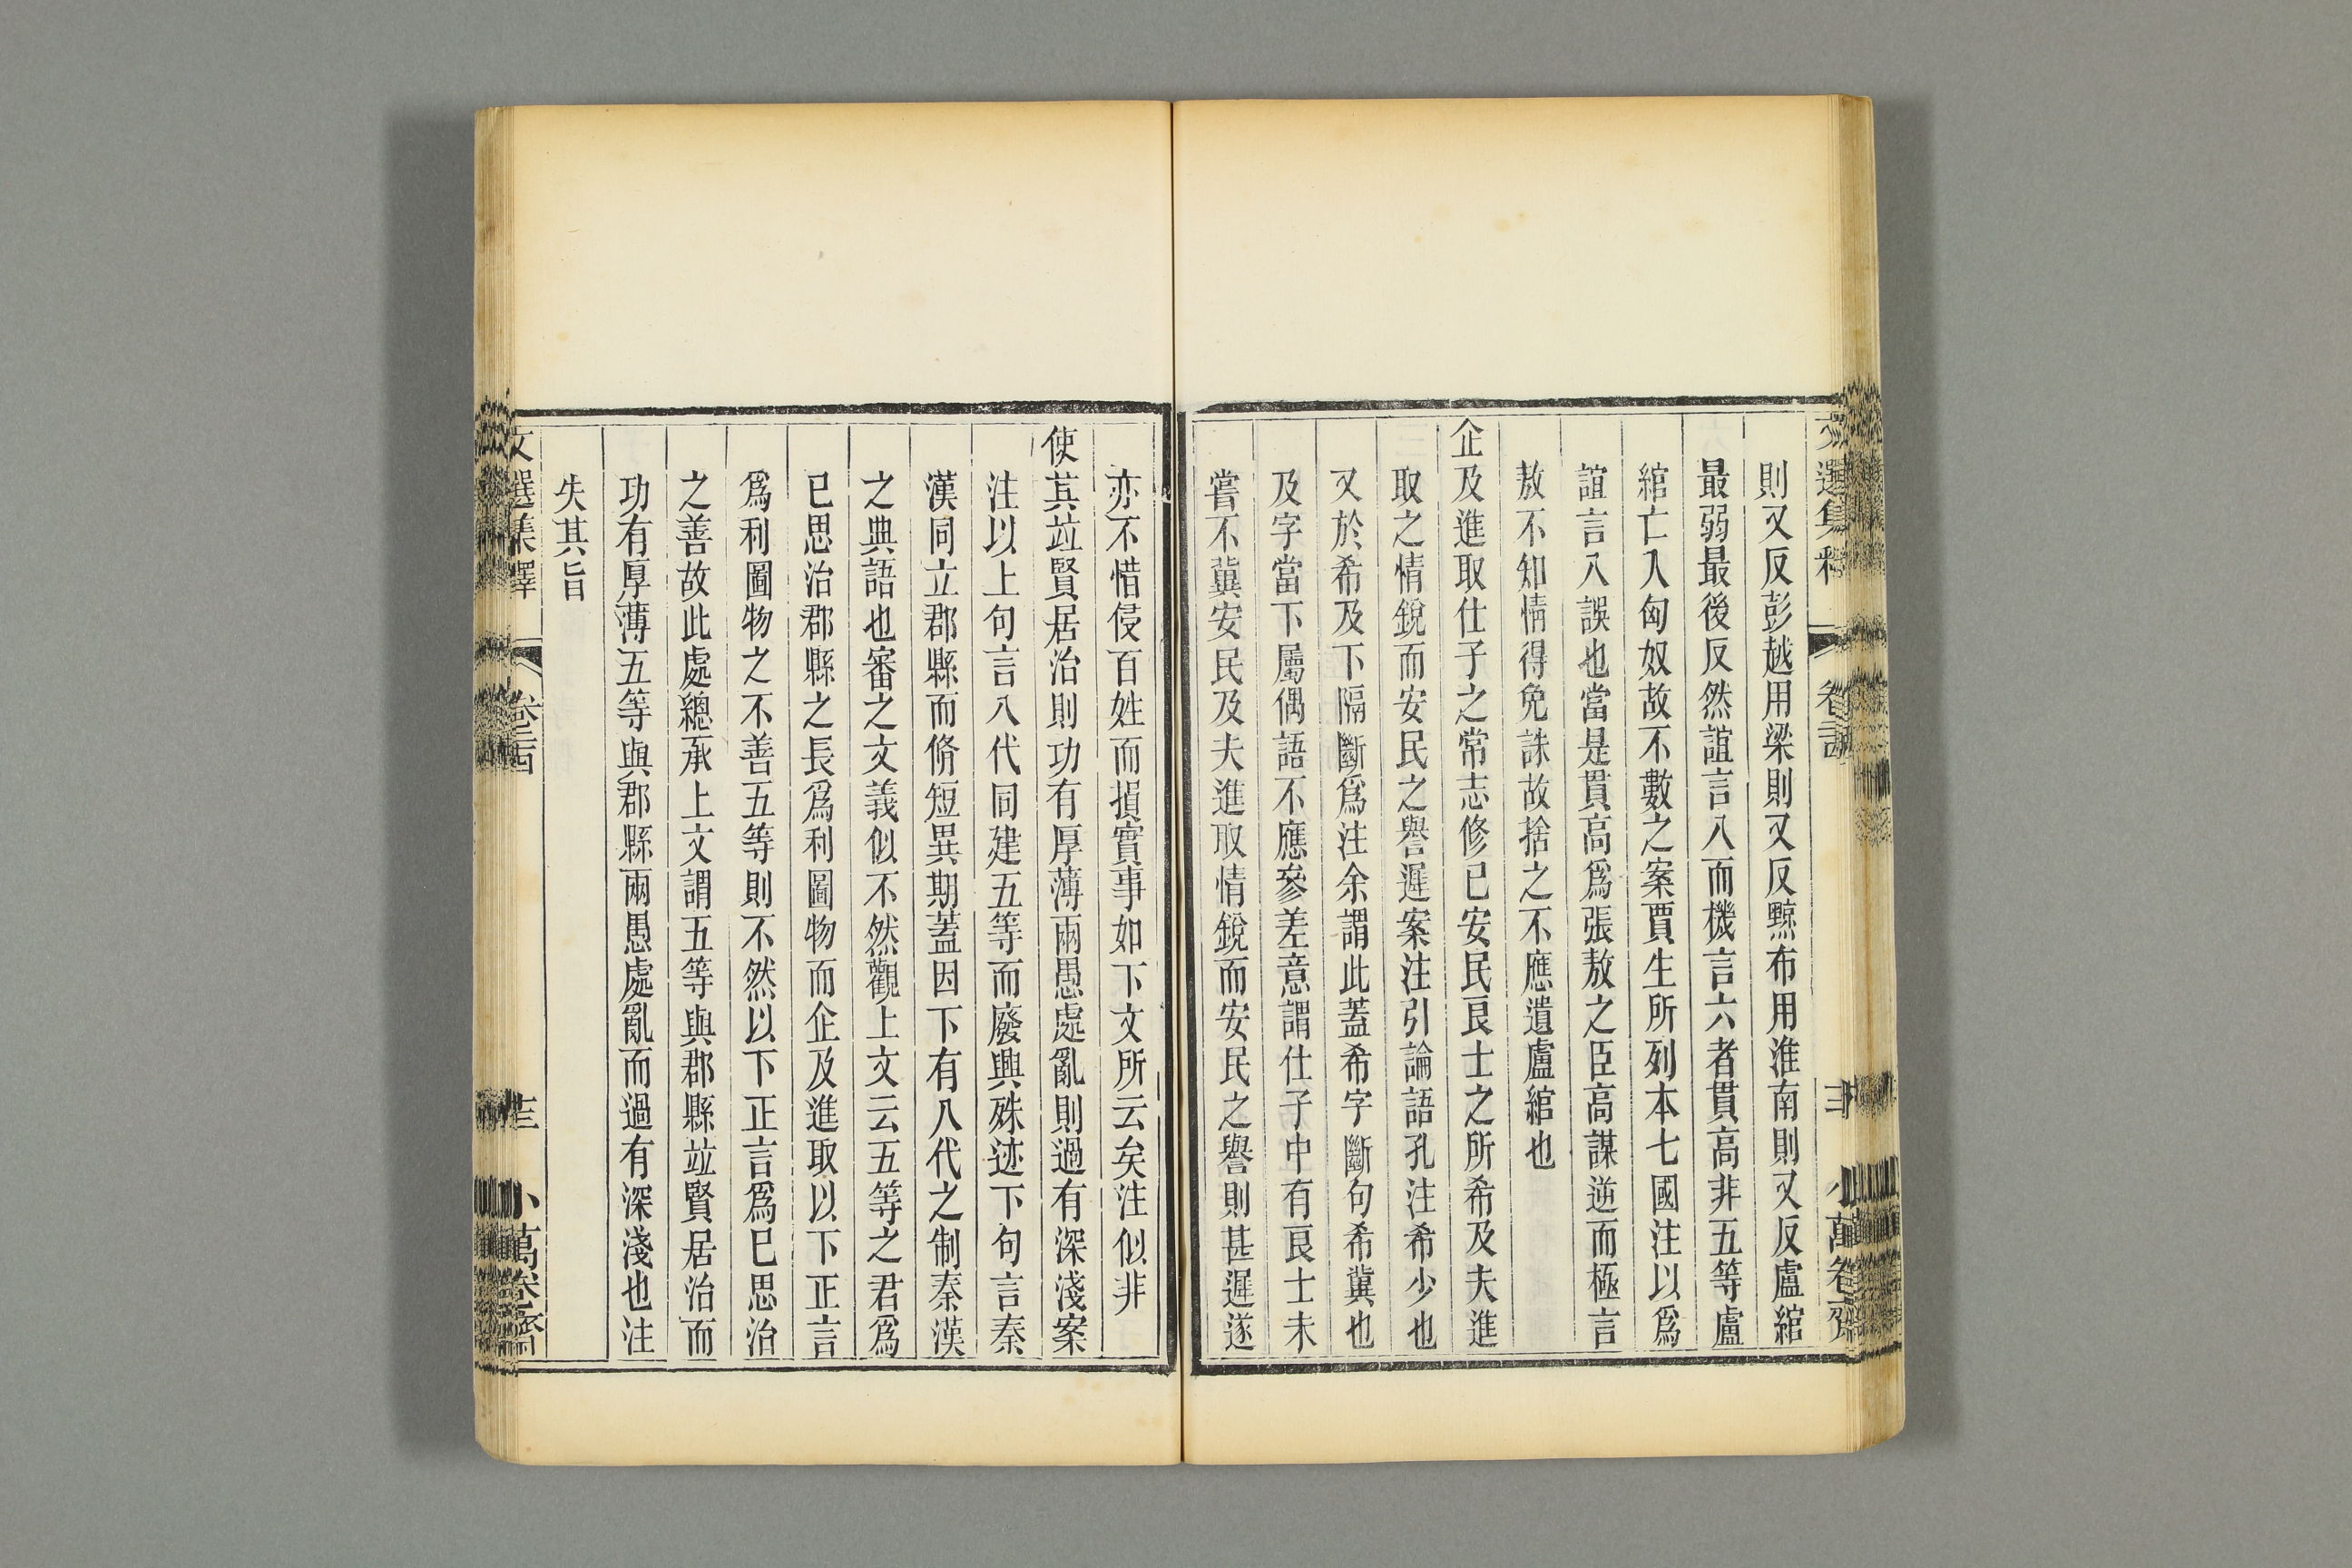 則又反彭越用梁則又反黥布用淮南則又反盧綰
最弱最後反然誼言八而機言六者貫高非五等盧
綰亡入匈奴故不數之案賈生所列本七國注以爲
誼言八誤也當是貫高爲張敖之臣高謀逆而極言
敖不知情得免誅故捨之不應遺盧綰也
企及進取仕子之常志修己安民良士之所希及夫進
取之情銳而安民之譽遲案注引論語孔注希少也
又於希及下隔斷爲注余謂此蓋希字斷句希冀也
及字當下屬偶語不應參差意謂仕子中有良士未
嘗不冀安民及夫進取情銳而安民之譽則甚遲遂
亦不惜侵百姓而損實事如下文所云矣注似非
使其竝賢居治則功有厚薄兩愚處亂則過有深淺案
注以上句言八代同建五等而廢興殊迹下句言秦
漢同立郡縣而脩短異期蓋因下有八代之制秦漢
之典語也審之文義似不然觀上文云五等之君爲
已思治郡縣之長爲利圖物而企及進取以下正言
爲利圖物之不善五等則不然以下正言爲已思治
之善故此處總承上文謂五等與郡縣竝賢居治而
功有厚薄五等與郡縣兩愚處亂而過有深淺也注
失其旨
文選集釋
卷二十四
小萬卷齋